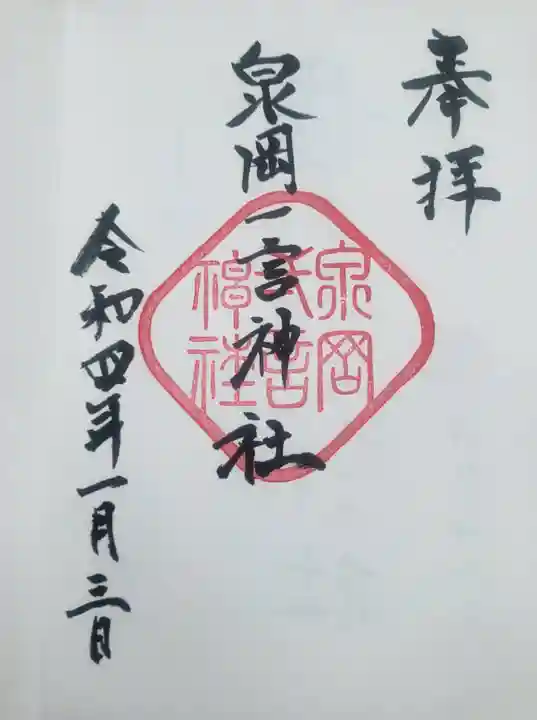 奉拝
泉岡一言神社
泉岡
弌言
神社
令和四年一月三日